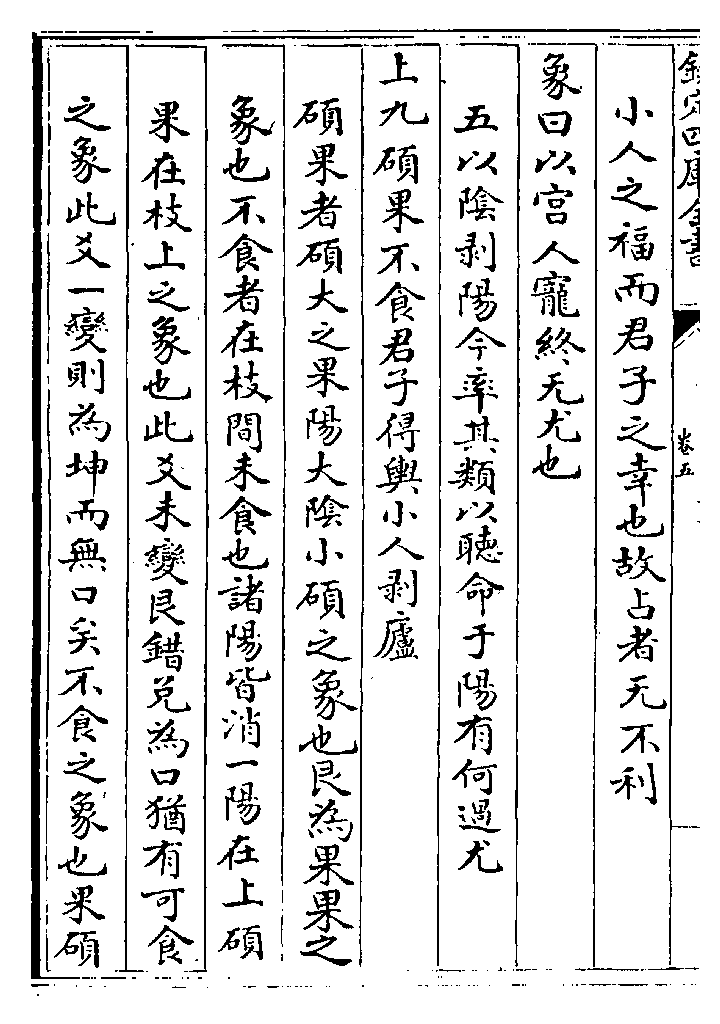 欽定四庫全書
卷五
小人之福而君子之幸也故占者无不利
象曰以宮人寵終无尤也
五以陰剥陽今率其類以聽命于陽有何過尤
上九碩果不食君子得輿小人剥廬
碩果者碩大之果陽大陰小碩之象也艮為果果之
象也不食者在枝間未食也諸陽皆消一陽在上碩
果在枝上之象也此爻未變艮錯兌為口猶有可食
之象此爻一變則為坤而無口矣不食之象也果碩